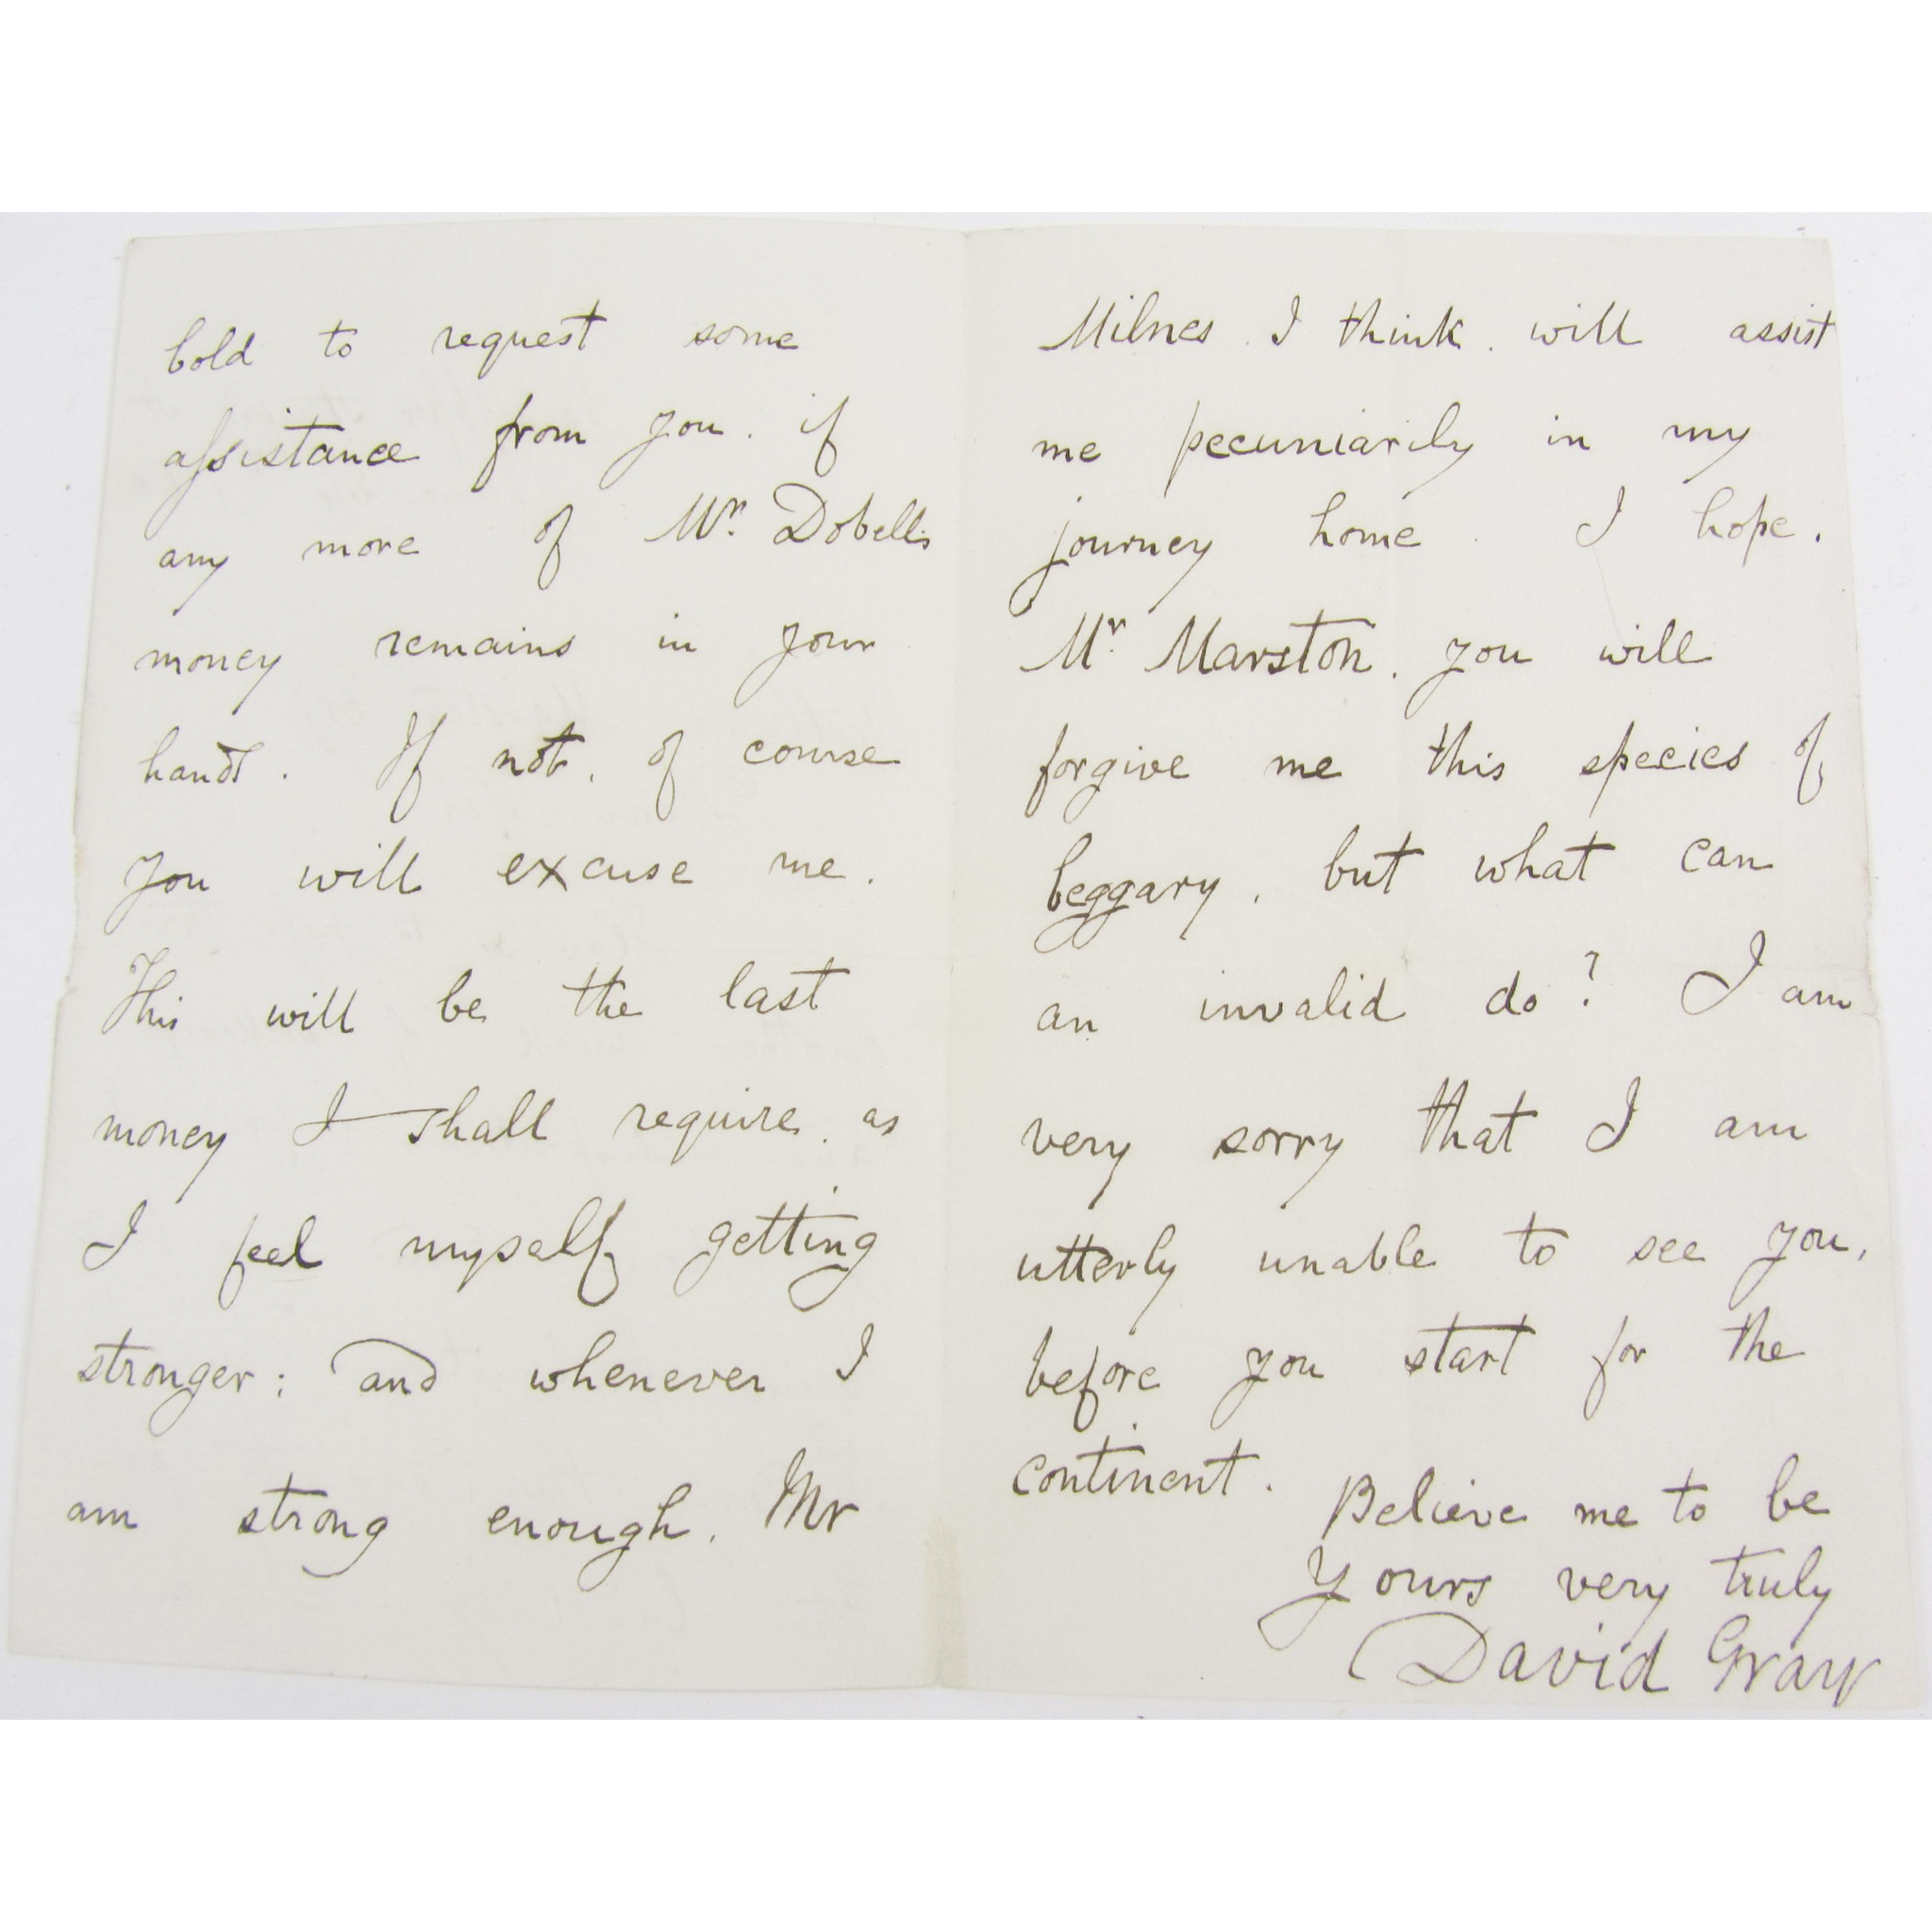 bold to request some
assistance from you, if
any more of Mr. Dobell's
money remains in your
hands. If not, of course
you will excuse me.
This will be the last
money I shall require, as
I feel myself getting
stronger; and whenever I
am strong enough, Mr
Milnes, I think, will assist
me pecuniarily in my
journey home. I hope,
Mr. Marston, you will
forgive me this species of
beggary, but what can
an invalid do? I am
very sorry that I am
utterly unable to see you,
before you start for the
continent.
Believe me to be
Yours very truly
David Gray